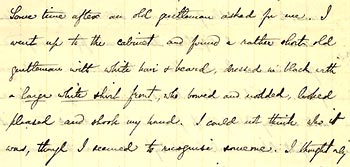 Some time after an old gentleman asked for me. I
went up to the cabinet and found a rather short old
gentleman with white hair & beard, dressed in black with
a large white shirt front, who bowed and nodded, looked
pleased and shook my hand. I could not think who it
was, though I seemed to recognise someone. I thought